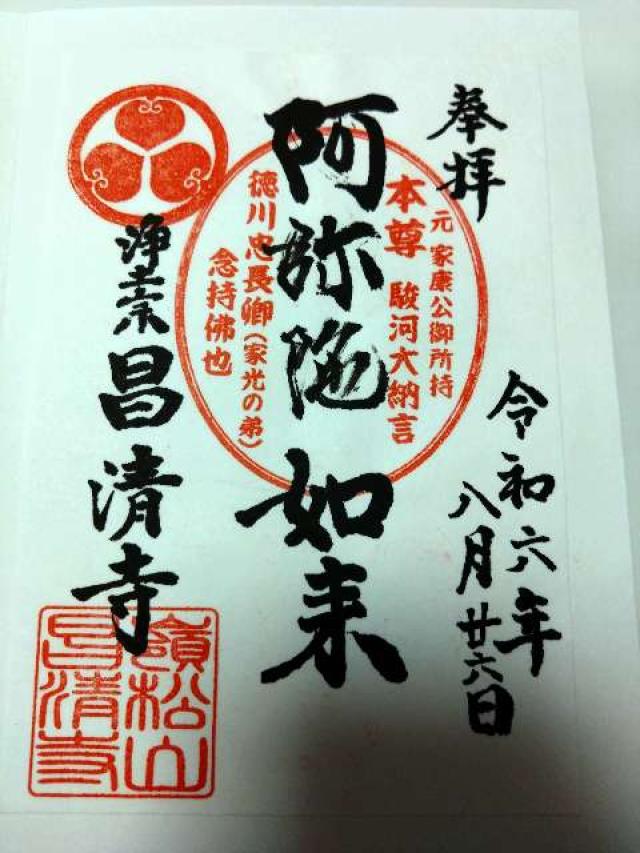 奉拝
令和六年
八月廿六日
阿弥陀如来
元 家康公御所持
本尊 駿河大納言
徳川忠長卿(家光の弟)
念持佛也
浄土宗 昌清寺
嶺松山
昌清寺